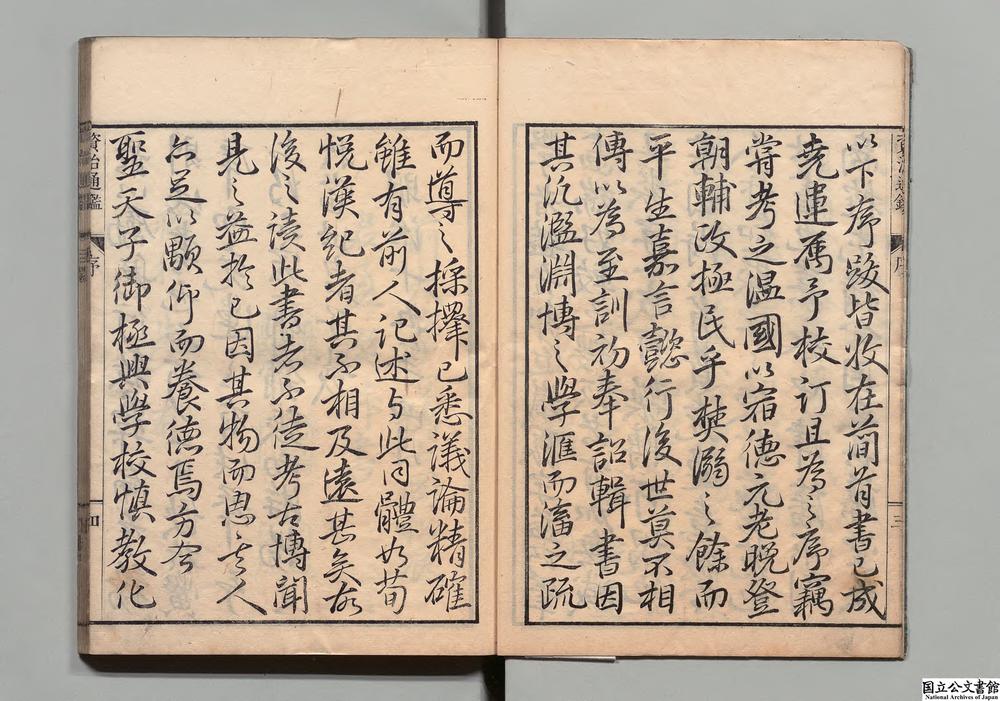 以下序跋皆收在簡首書已成
堯連舊予校订且為之序竊
嘗考之温國以宿德元老晚登
朝輔政極民乎焚溺之餘而
平生嘉言懿行後世莫不相
傳以為至訓初奉詔輯書因
其氾濫淵博之學滙而瀦之疏
資治通鑑
序
三
而導之採擇已悉議論精確
雖有前人記述与此同體如荀
悦漢紀者其不相及遠甚矣
後之讀此書者不徒考古博聞
見之益於已因其物而思其人
亦足以顒仰而養德焉方今
聖天子御極興學校慎教化
資治通鑑
序
四
国立公文書館
National Archives of Japan